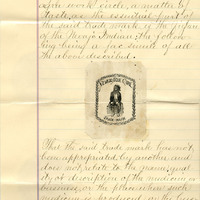 such work circle, a matter of
taste, as the essential part of
the said trade mark is the figure
of the Navajo Indian, the follow-
ing being a fac simile of all
the above described.
That the said trade mark has not
been appropriated by another and
does not relate to the
or description of the medicine or
business, or the place where such
medicine is produced or the